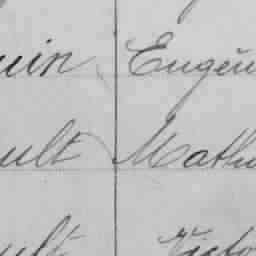 uin Eugén
ult Mathu
ult Victo